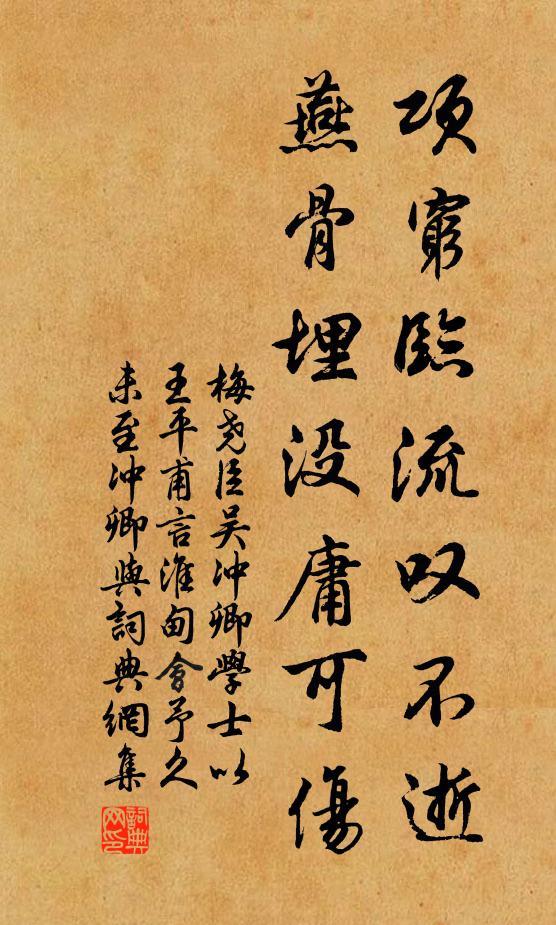 项窮臨流叹不逝
燕骨埋没庸可傷
梅尧臣吴冲卿學士以
王平甫言淮甸會予久
未至冲卿與詞典網集
詞典
网印